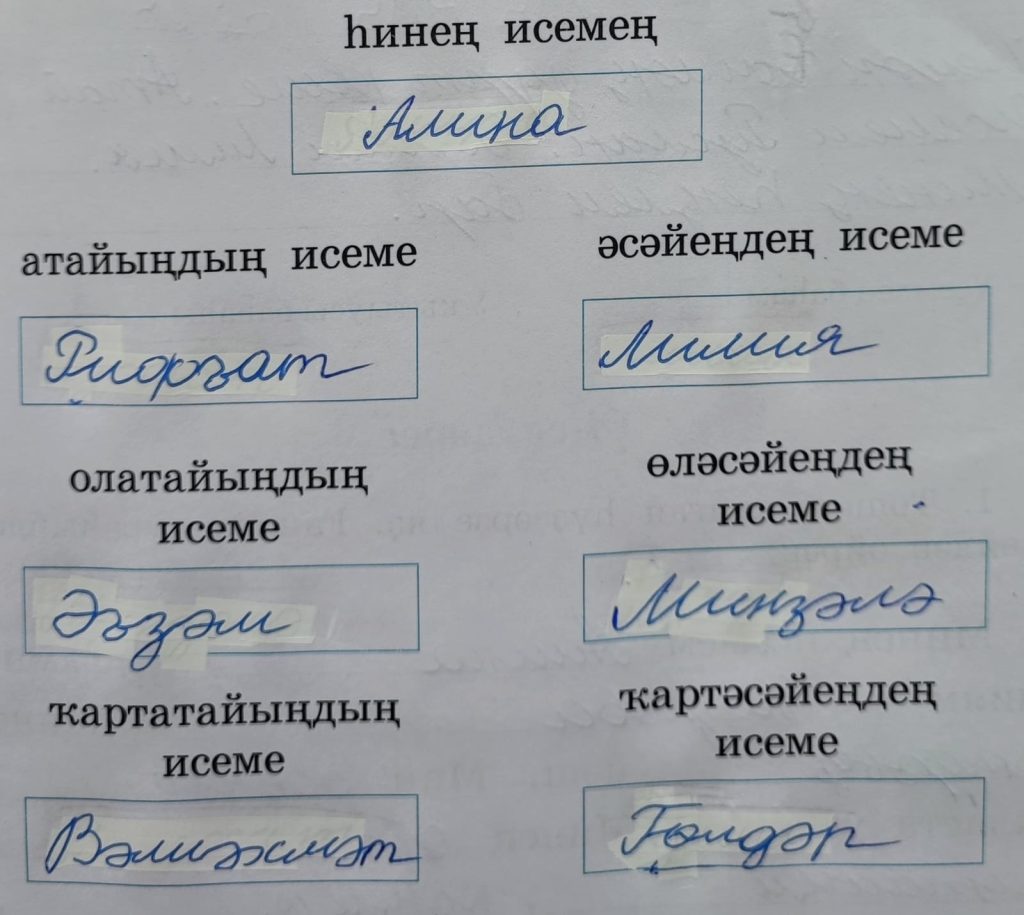 һинең исемең
Алина
атайыңдың исеме
әсәйеңдең исеме
Рифҡат
Лилия
олатайыңдың
исеме
өләсәйеңдең
исеме
Әғзәм
Минзәлә
ҡартатайыңдың
исеме
ҡартәсәйеңдең
исеме
Вәлиәхмәт
Гөлдәр